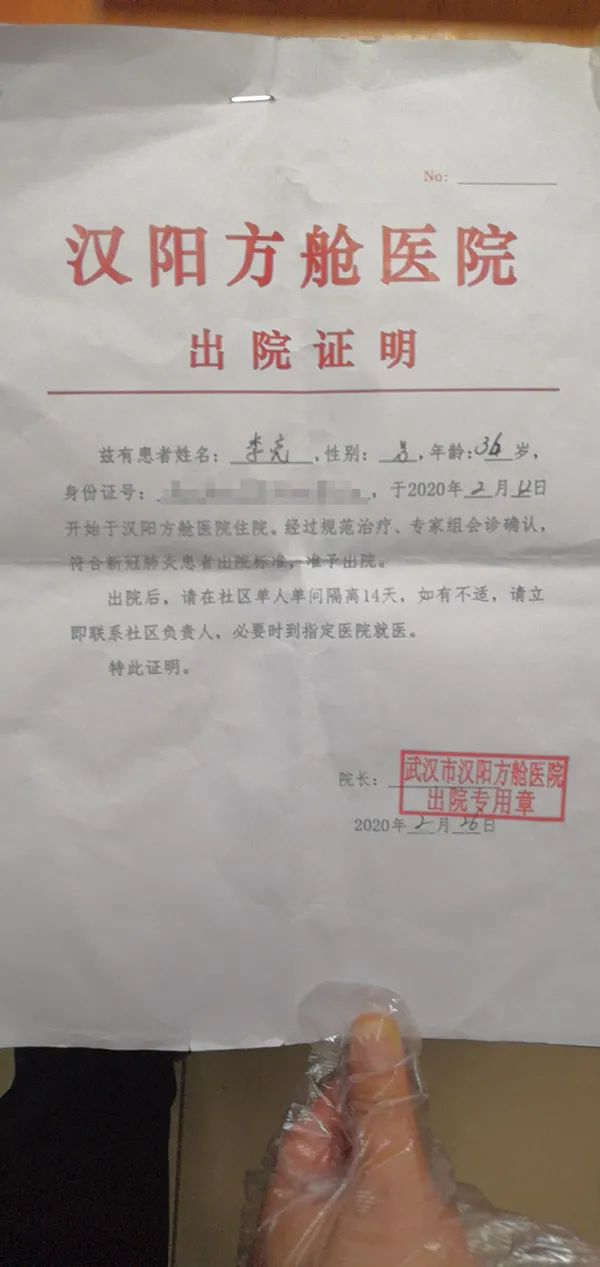 No:
汉阳方舱医院
出院证明
兹有患者姓名：李亮，性别：男，年龄：36岁，
身份证号：，于2020年2月12日
开始于汉阳方舱医院住院。经过规范治疗、专家组会诊确认，
符合新冠肺炎患者出院标准，准予出院。
出院后，请在社区单人单间隔离14天，如有不适，请立
即联系社区负责人，必要时到指定医院就医。
特此证明。
院长：
武汉市汉阳方舱医院
出院专用章
2020年2月26日